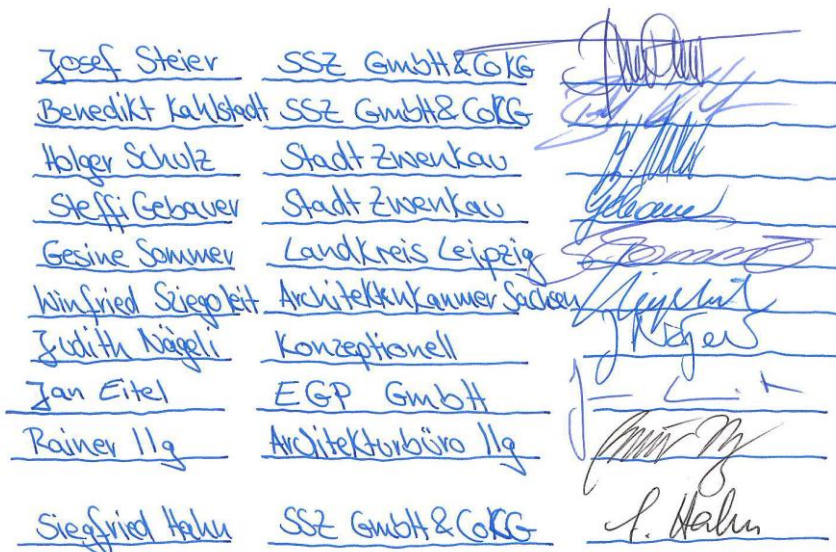 Josef Steier SSZ GmbH & Co KG
Benedikt Kahlstedt SSZ GmbH & CoKG
Holger Schulz Stadt Zwenkau
Steffi Gebauer Stadt Zwenkau Gebauer
Gesine Sommer Landkreis Leipzig G. Sommer
Winfried Sziegoleit Architektenkammer Sachsen
Judith Nägeli Konzeptionell J Nägeli
Jan Eitel EGP GmbH
Rainer Ilg Architekturbüro Ilg
Siegfried Hahn SSZ GmbH & CoKG S. Hahn